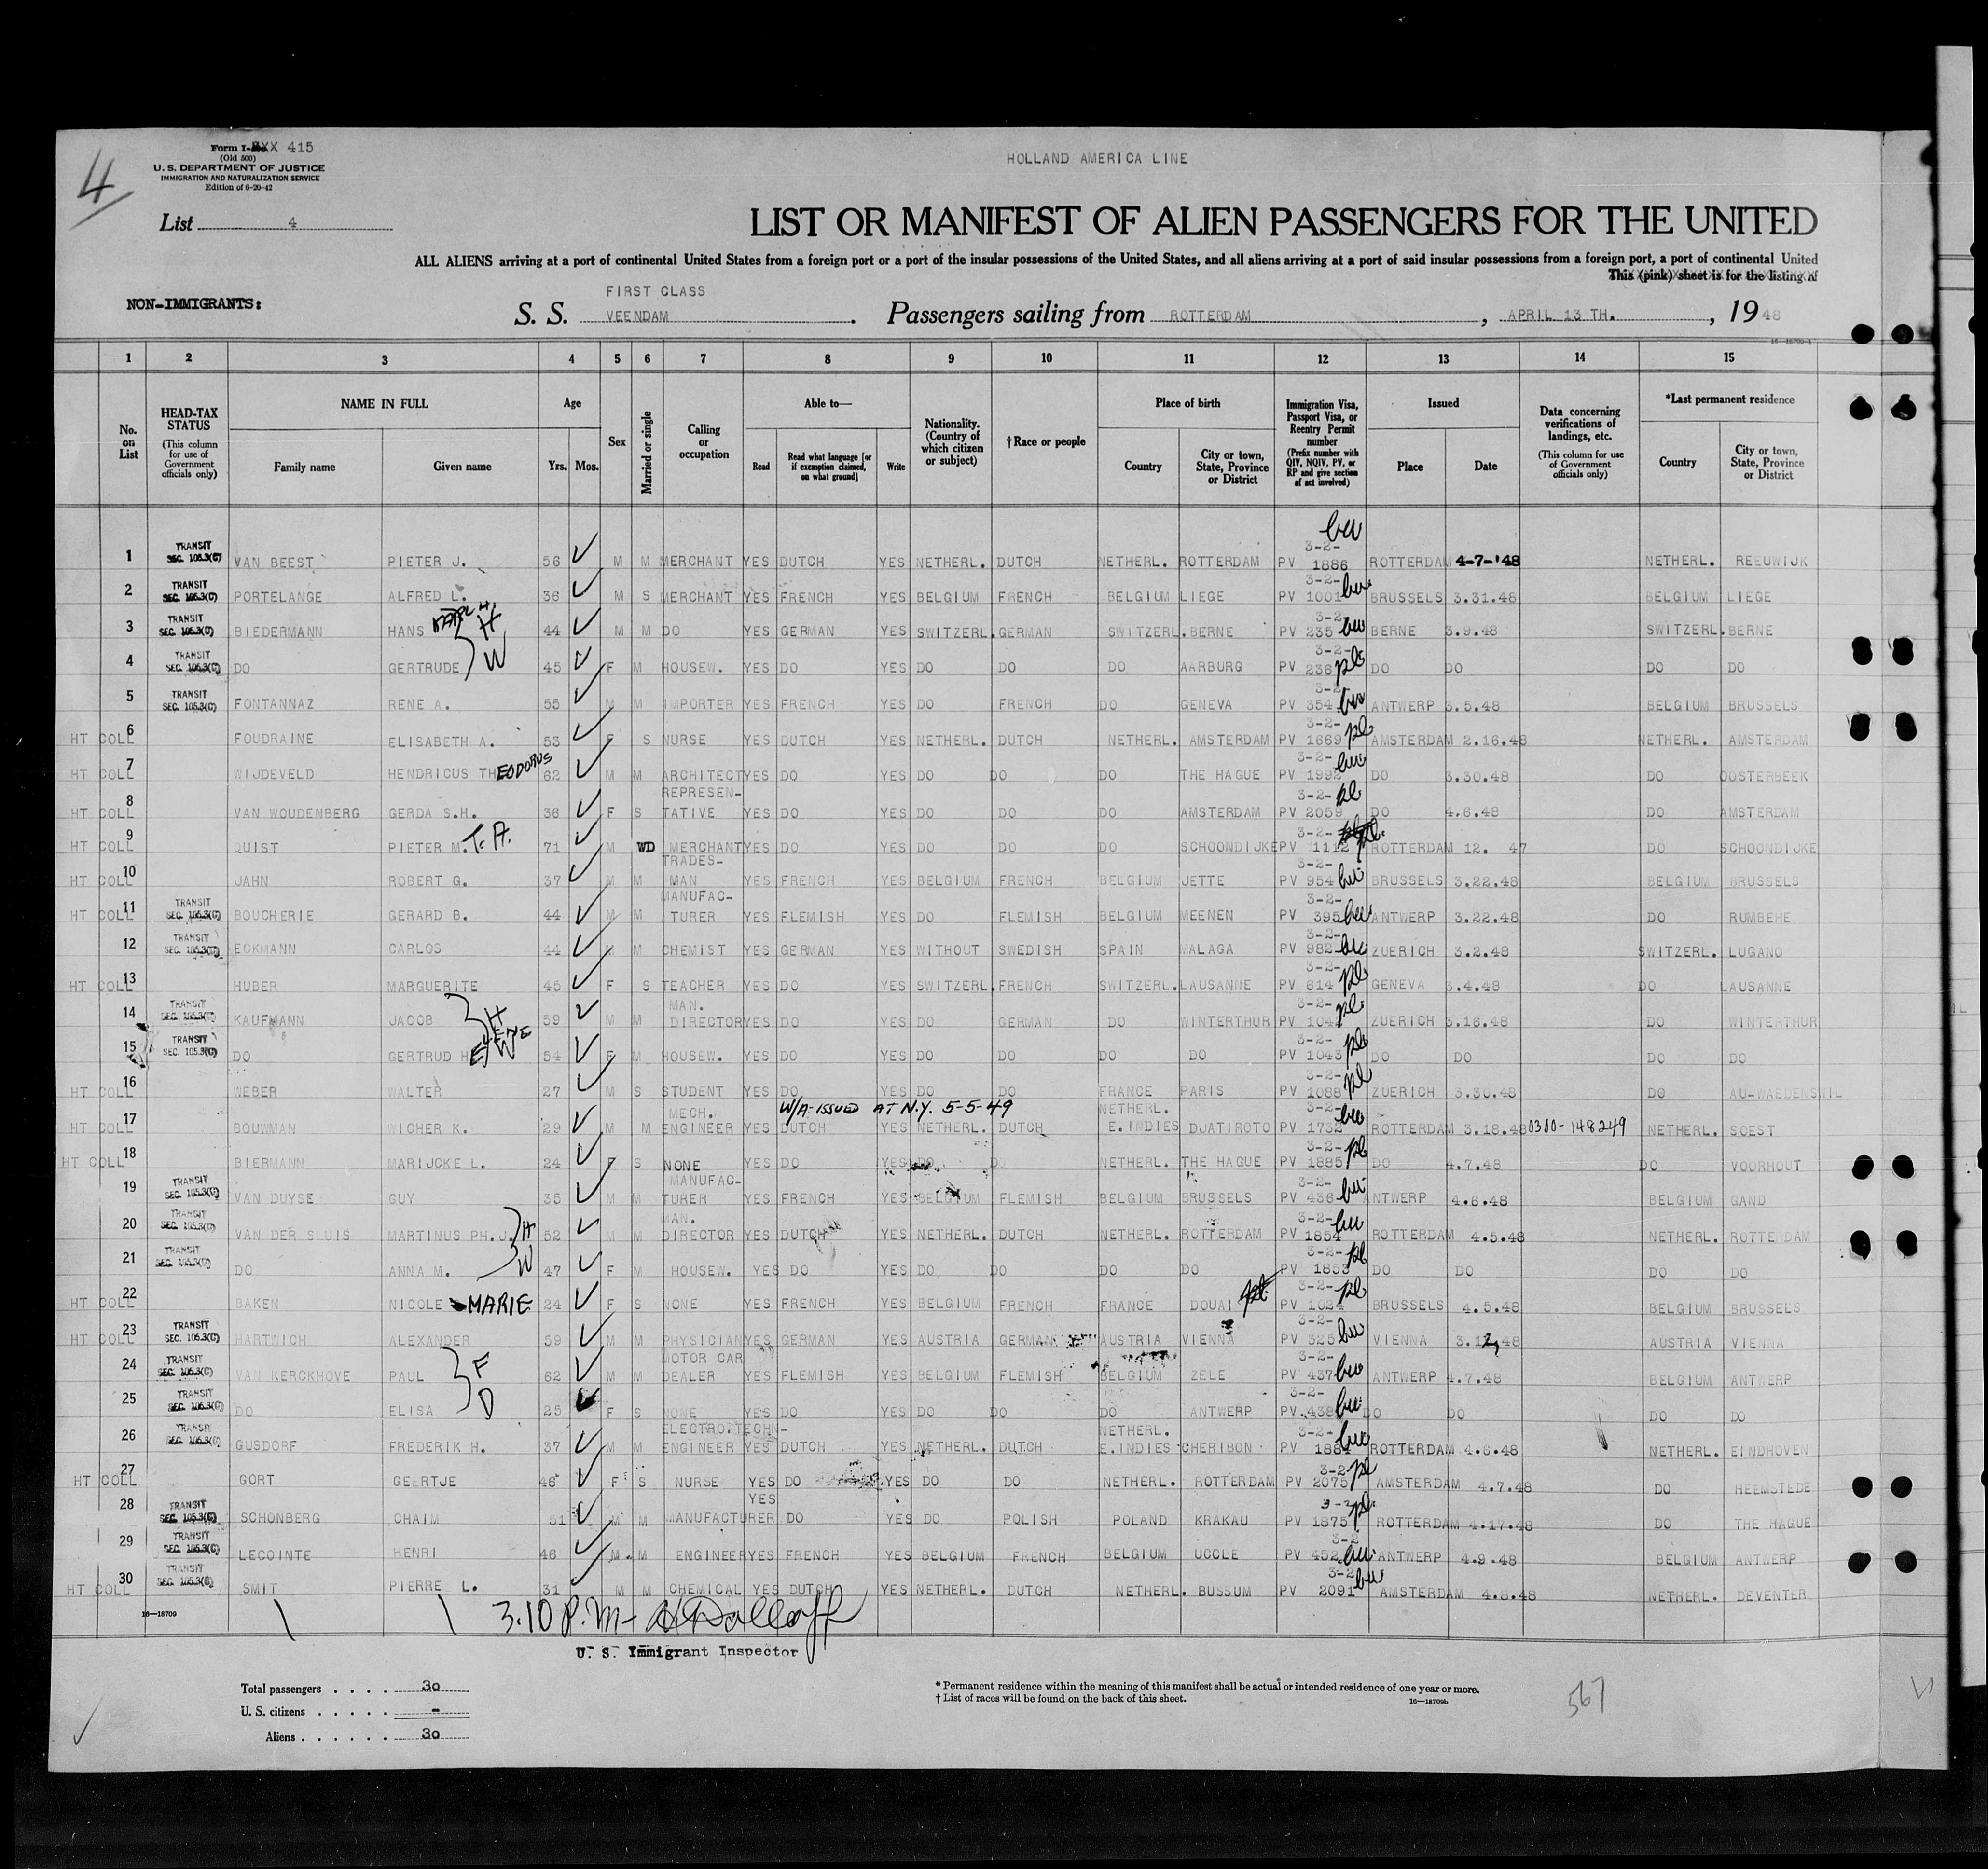 4
Form I-XXX 415
(Old 500)
U. S. DEPARTMENT OF JUSTICE
IMMIGRATION AND NATURALIZATION SERVICE
Edition of 6-20-42
HOLLAND AMERICA LINE
List 4
LIST OR MANIFEST OF ALIEN PASSENGERS FOR THE UNITED
ALL ALIENS arriving at a port of continental United States from a foreign port or a port of the insular possessions of the United States, and all aliens arriving at a port of said insular possessions from a foreign port, a port of continental United
This (pink) sheet is for the listing of
NON-IMMIGRANTS:
FIRST CLASS
S. S. VEENDAM. Passengers sailing from ROTTERDAM, APRIL 13 TH., 1948
1 2 3 4 5 6 7 8 9 10 11 12 13 14 15
No. on List
HEAD-TAX STATUS (This column for use of Government officials only)
NAME IN FULL Family name Given name
Age Yrs. Mos.
Sex
Married or single
Calling or occupation
Able to— Read Read what language [or if exemption claimed, on what ground] Write
Nationality. (Country of which citizen or subject)
†Race or people
Place of birth Country City or town, State, Province or District
Immigration Visa, Passport Visa, or Reentry Permit number (Prefix number with QIV, NQIV, PV, or RP and give section of act involved)
Issued Place Date
Data concerning verifications of landings, etc. (This column for use of Government officials only)
*Last permanent residence Country City or town, State, Province or District
1 TRANSIT SEC. 105.3(C) VAN BEEST PIETER J. 56 M M MERCHANT YES DUTCH YES NETHERL. DUTCH NETHERL. ROTTERDAM 3-2- PV 1886 ROTTERDAM 4-7-'48 NETHERL. REEUWIJK
2 TRANSIT SEC. 105.3(C) PORTELANGE ALFRED L. 36 M S MERCHANT YES FRENCH YES BELGIUM FRENCH BELGIUM LIEGE 3-2- PV 1001 BRUSSELS 3.31.48 BELGIUM LIEGE
3 TRANSIT SEC. 105.3(C) BIEDERMANN HANS H 44 M M DO YES GERMAN YES SWITZERL. GERMAN SWITZERL. BERNE 3-2- PV 235 BERNE 3.9.48 SWITZERL. BERNE
4 TRANSIT SEC. 105.3(C) DO GERTRUDE W 45 F M HOUSEW. YES DO YES DO DO DO AARBURG 3-2- PV 236 DO DO DO DO
5 TRANSIT SEC. 105.3(C) FONTANNAZ RENE A. 55 M M IMPORTER YES FRENCH YES DO FRENCH DO GENEVA 3-2 PV 354 ANTWERP 3.5.48 BELGIUM BRUSSELS
HT COLL 6 FOUDRAINE ELISABETH A. 53 F S NURSE YES DUTCH YES NETHERL. DUTCH NETHERL. AMSTERDAM 3-2- PV 1669 AMSTERDAM 2.16.48 NETHERL. AMSTERDAM
HT COLL 7 WIJDEVELD HENDRICUS THEODORUS 62 M M ARCHITECT YES DO YES DO DO DO THE HAGUE 3-2- PV 1992 DO 3.30.48 DO OOSTERBEEK
HT COLL 8 VAN WOUDENBERG GERDA S.H. 36 F S REPRESEN-TATIVE YES DO YES DO DO DO AMSTERDAM 3-2- PV 2059 DO 4.6.48 DO AMSTERDAM
HT COLL 9 QUIST PIETER M. T. A. 71 M WD MERCHANT YES DO YES DO DO DO SCHOONDIJKE 3-2- PV 1112 ROTTERDAM 12. 47 DO SCHOONDIJKE
HT COLL 10 JAHN ROBERT G. 37 M M TRADES-MAN YES FRENCH YES BELGIUM FRENCH BELGIUM JETTE 3-2- PV 954 BRUSSELS 3.22.48 BELGIUM BRUSSELS
HT COLL 11 TRANSIT SEC. 105.3(C) BOUCHERIE GERARD B. 44 M M MANUFAC-TURER YES FLEMISH YES DO FLEMISH BELGIUM MEENEN 3-2- PV 395 ANTWERP 3.22.48 DO RUMBEHE
12 TRANSIT SEC. 105.3(C) ECKMANN CARLOS 44 M M CHEMIST YES GERMAN YES WITHOUT SWEDISH SPAIN MALAGA 3-2- PV 982 ZUERICH 3.2.48 SWITZERL. LUGANO
HT COLL 13 HUBER MARGUERITE 45 F S TEACHER YES DO YES SWITZERL. FRENCH SWITZERL. LAUSANNE 3-2- PV 614 GENEVA 3.4.48 DO LAUSANNE
14 TRANSIT SEC. 105.3(C) KAUFMANN JACOB H 59 M M MAN. DIRECTOR YES DO YES DO GERMAN DO WINTERTHUR 3-2- PV 1042 ZUERICH 3.16.48 DO WINTERTHUR
15 TRANSIT SEC. 105.3(C) DO GERTRUD HELENE W 54 F M HOUSEW. YES DO YES DO DO DO DO 3-2- PV 1043 DO DO DO DO
HT COLL 16 WEBER WALTER 27 M S STUDENT YES DO YES DO DO FRANCE PARIS 3-2- PV 1088 ZUERICH 3.30.48 DO AU-WAEDENSWIL
W/A-ISSUED AT N.Y. 5-5-49
HT COLL 17 BOUWMAN WICHER K. 29 M M MECH. ENGINEER YES DUTCH YES NETHERL. DUTCH NETHERL. E.INDIES DJATIROTO 3-2- PV 1732 ROTTERDAM 3.18.48 0300-148249 NETHERL. SOEST
HT COLL 18 BIERMANN MARIJCKE L. 24 F S NONE YES DO YES DO DO NETHERL. THE HAGUE 3-2- PV 1885 DO 4.7.48 DO VOORHOUT
19 TRANSIT SEC. 105.3(C) VAN DUYSE GUY 35 M M MANUFAC-TURER YES FRENCH YES BELGIUM FLEMISH BELGIUM BRUSSELS 3-2- PV 436 ANTWERP 4.6.48 BELGIUM GAND
20 TRANSIT SEC. 105.3(C) VAN DER SLUIS MARTINUS PH.J. H 52 M M MAN. DIRECTOR YES DUTCH YES NETHERL. DUTCH NETHERL. ROTTERDAM 3-2- PV 1854 ROTTERDAM 4.5.48 NETHERL. ROTTERDAM
21 TRANSIT SEC. 105.3(C) DO ANNA M. W 47 F M HOUSEW. YES DO YES DO DO DO DO 3-2- PV 1853 DO DO DO DO
HT COLL 22 BAKEN NICOLE MARIE 24 F S NONE YES FRENCH YES BELGIUM FRENCH FRANCE DOUAI 3-2- PV 1024 BRUSSELS 4.5.48 BELGIUM BRUSSELS
HT COLL 23 TRANSIT SEC. 105.3(C) HARTWICH ALEXANDER 59 M M PHYSICIAN YES GERMAN YES AUSTRIA GERMAN AUSTRIA VIENNA 3-2- PV 325 VIENNA 48 AUSTRIA VIENNA
24 TRANSIT SEC. 105.3(C) VAN KERCKHOVE PAUL F 62 M M MOTOR CAR DEALER YES FLEMISH YES BELGIUM FLEMISH BELGIUM ZELE 3-2- PV 437 ANTWERP 4.7.48 BELGIUM ANTWERP
25 TRANSIT SEC. 105.3(C) DO ELISA D 25 F S NONE YES DO YES DO DO DO ANTWERP 3-2- PV 438 DO DO DO DO
26 TRANSIT SEC. 105.3(C) GUSDORF FREDERIK H. 37 M M ELECTRO.TECHN-ENGINEER YES DUTCH YES NETHERL. DUTCH NETHERL. E.INDIES CHERIBON 3-2- PV 1884 ROTTERDAM 4.6.48 NETHERL. EINDHOVEN
HT COLL 27 GORT GEERTJE 46 F S NURSE YES DO YES DO DO NETHERL. ROTTERDAM 3-2 PV 2075 AMSTERDAM 4.7.48 DO HEEMSTEDE
28 TRANSIT SEC. 105.3(C) SCHONBERG CHAIM 51 M M MANUFACTURER YES DO YES DO POLISH POLAND KRAKAU 3-2 PV 1875 ROTTERDAM 4.17.48 DO THE HAGUE
29 TRANSIT SEC. 105.3(C) LECOINTE HENRI 46 M M ENGINEER YES FRENCH YES BELGIUM FRENCH BELGIUM UCCLE 3-2 PV 452 ANTWERP 4.9.48 BELGIUM ANTWERP
HT COLL 30 TRANSIT SEC. 105.3(C) SMIT PIERRE L. 31 M M CHEMICAL YES DUTCH YES NETHERL. DUTCH NETHERL. BUSSUM 3-2 PV 2091 AMSTERDAM 4.8.48 NETHERL. DEVENTER
16—18709
3.10 P.M-
U. S. Immigrant Inspector
Total passengers . . . . 30
U. S. citizens . . . . . -
Aliens . . . . . . 30
* Permanent residence within the meaning of this manifest shall be actual or intended residence of one year or more.
† List of races will be found on the back of this sheet.
16—18709b
567